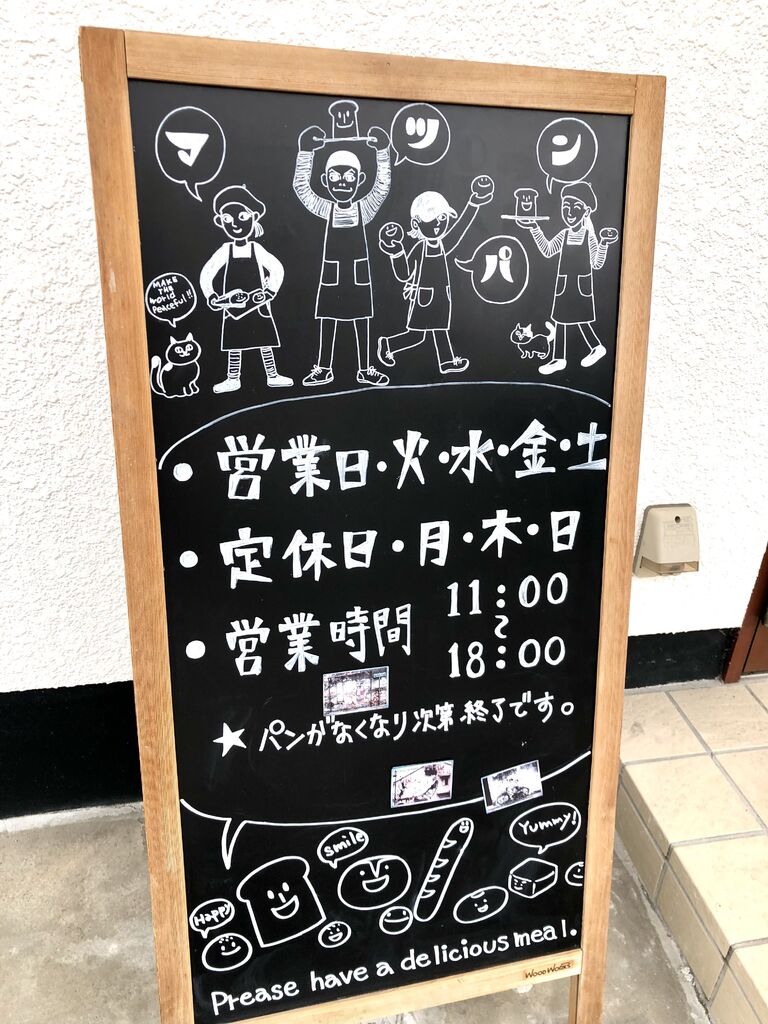 マ
ツ
パ
ン
MAKE THE World Peaceful!!
・営業日・火・水・金・土
・定休日・月・木・日
・営業時間 11:00
〜
18:00
★パンがなくなり次第終了です。
smile
Yummy!
Happy
Prease have a delicious meal.
WOOD WORKS